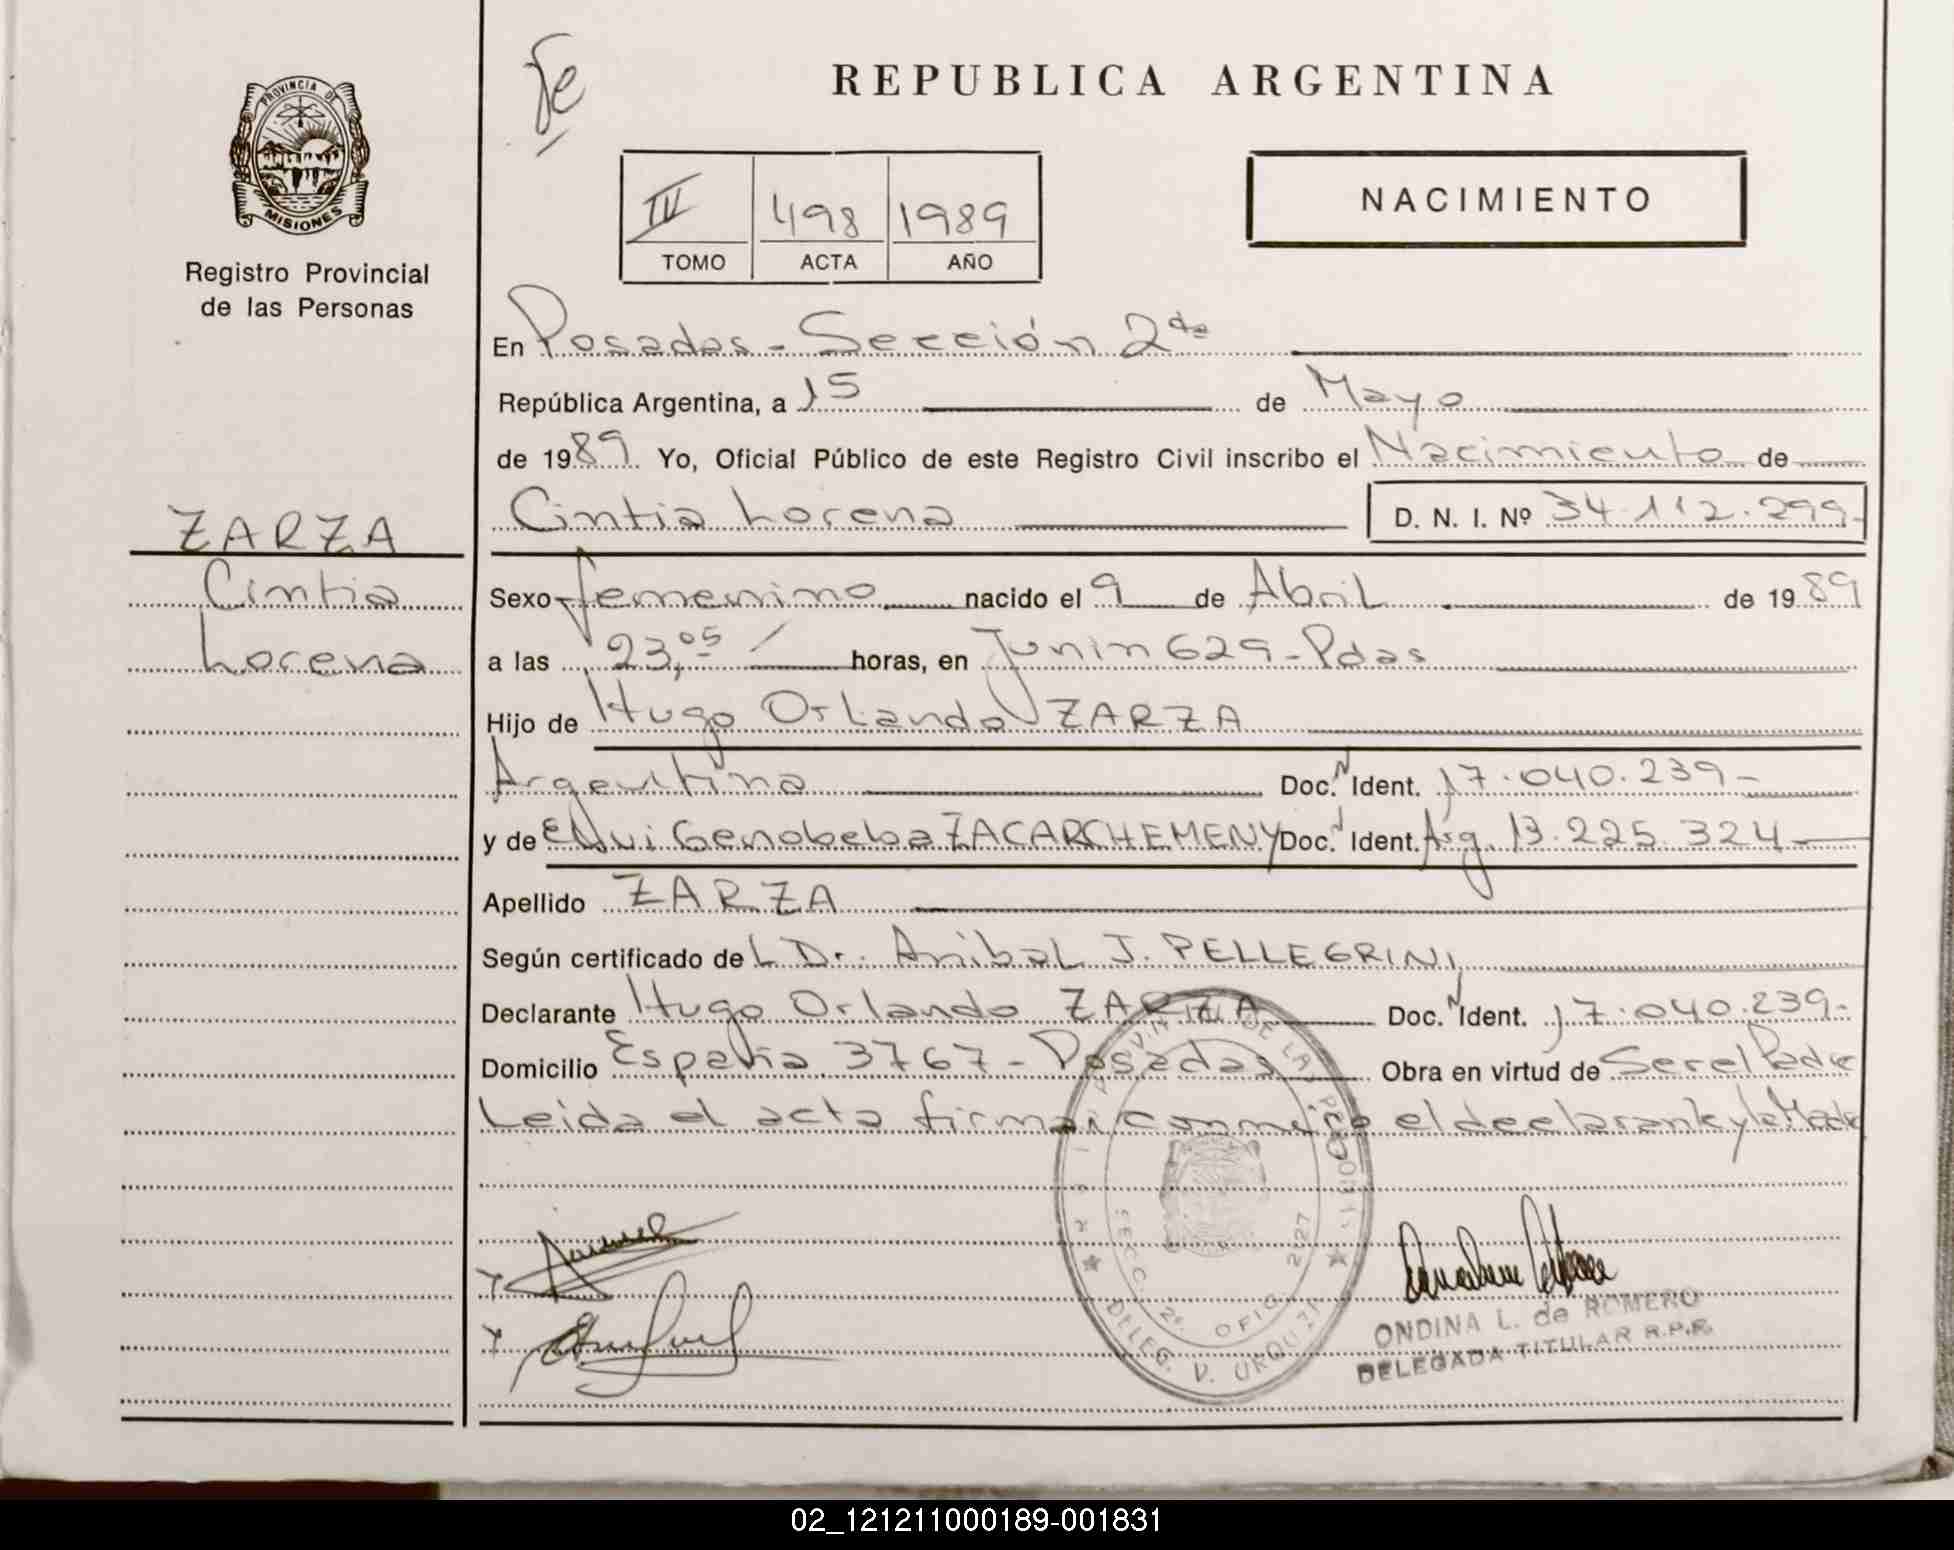 PROVINCIA DE
MISIONES
Registro Provincial
de las Personas
ZARZA
Cintia
Lorena
REPUBLICA ARGENTINA
IV 498 1989
TOMO ACTA AÑO
NACIMIENTO
En Posadas - Sección 2da
República Argentina, a 15 de Mayo
de 1989. Yo, Oficial Público de este Registro Civil inscribo el Nacimiento de
Cintia Lorena D. N. I. Nº 34.112.299-
Sexo femenino nacido el 9 de Abril de 1989
a las 23,05 horas, en Junin 629 - Pdas
Hijo de Hugo Orlando ZARZA
Argentina Doc. N Ident. 17.040.239-
y de Genobeba Doc. Ident. Arg. 13.225.324-
Apellido ZARZA
Según certificado del Dr. Anibal J. PELLEGRINI
Declarante Hugo Orlando ZARZA Doc. N Ident. 17.040.239-
Domicilio España 3767 - Posadas Obra en virtud de Ser el Padre
Leida el acta firman conmigo el declarante y la Madre
SECC. 2a. OFIC. 2127
DELEG. V. URQUIZA
ONDINA L. de ROMERO
DELEGADA TITULAR R.P.P.
02_121211000189-001831